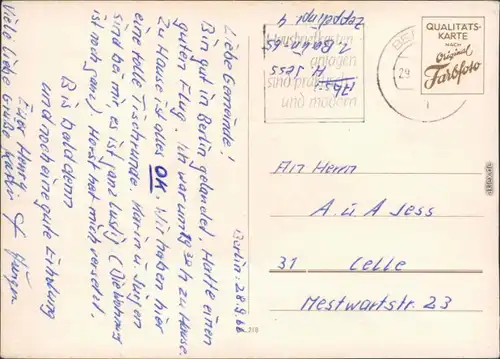 Berlin 28.9.66
Liebe Gemeinde!
Bin gut in Berlin gelandet. Hatte einen
guten Flug. Ich war um 19 30 h zu Hause.
Zu Hause ist alles OK. Wir haben hier
eine tolle Tischrunde. Karin u. Jürgen
sind bei mir, es ist ganz lustig (die Wohnung
ist noch ganz). Horst hat mich versetzt.
Bis bald dann
und noch eine gute Erholung
Euer Henry
Viele liebe Grüße Karin + Jürgen
Abs.
A Jess
1 Berlin 65
Zeppelinpl 4
Haushaltkarten
anlagen
sind
und modern
BE
29
QUALITÄTS-
KARTE
NACH
Original
Farbfoto
An Herrn
A. u A Jess
31 Celle
Mestwartstr. 23